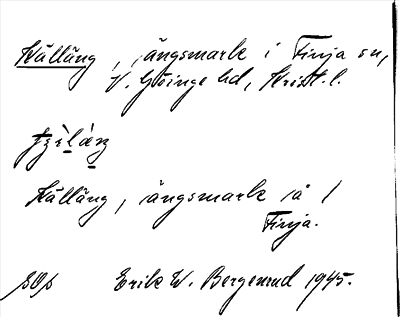 Källäng, ängsmark i Finja sn,
V. Göinge hd, Krist. l.
Källäng, ängsmark å 1
Finja.
Erik W. Bergenrud 1945.